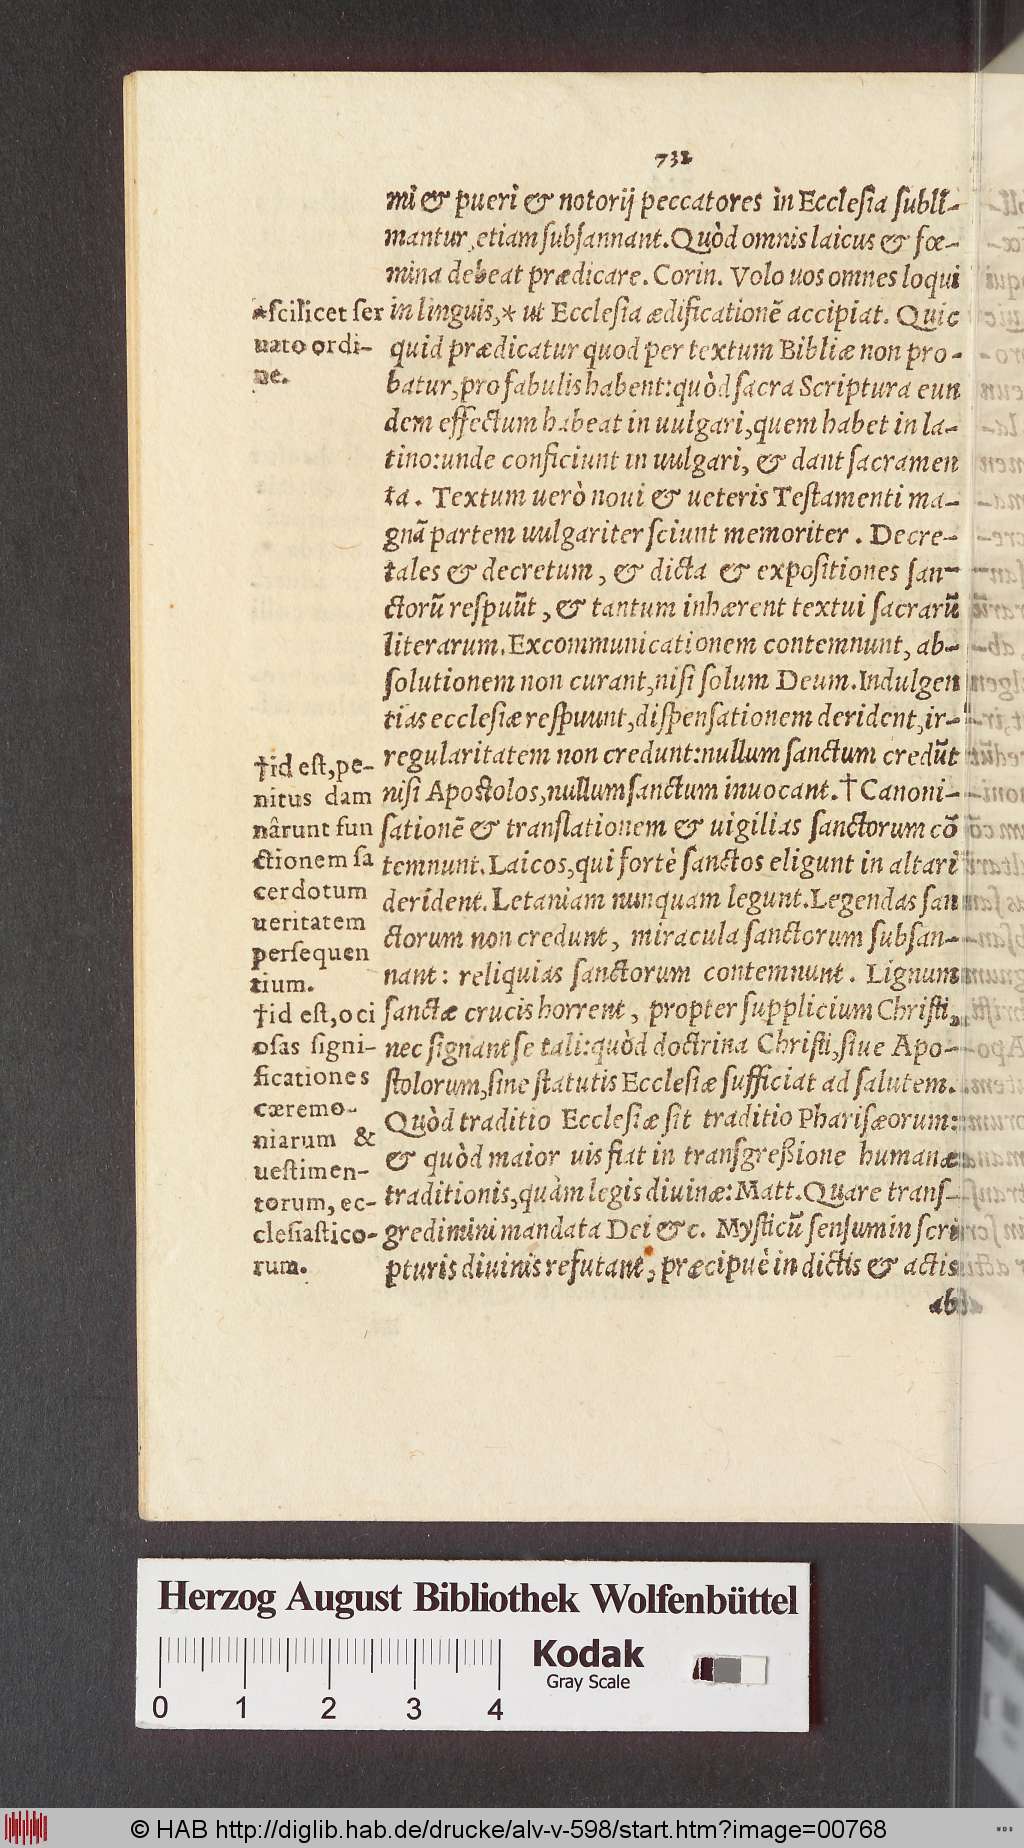 732
mi & pueri & notorij peccatores in Ecclesia subli-
mantur, etiam subsannant. Quòd omnis laicus & fœ-
mina debeat prædicare. Corin. Volo uos omnes loqui
in linguis,* ut Ecclesia ædificationē accipiat. Quic
quid prædicatur quod per textum Bibliæ non pro-
batur, pro fabulis habent: quòd sacra Scriptura eun
dem effectum habeat in uulgari, quem habet in la-
tino: unde conficiunt in uulgari, & dant sacramen
ta. Textum uerò noui & ueteris Testamenti ma-
gnā partem uulgariter sciunt memoriter. Decre-
tales & decretum, & dicta & expositiones san-
ctorū respuūt, & tantum inhærent textui sacrarū
literarum. Excommunicationem contemnunt, ab-
solutionem non curant, nisi solum Deum. Indulgen
tias ecclesiæ respuunt, dispensationem derident, ir-
regularitatem non credunt: nullum sanctum credūt
nisi Apostolos, nullum sanctum inuocant.† Canoni-
sationē & translationem & uigilias sanctorum cō
temnunt. Laicos, qui fortè sanctos eligunt in altari
derident. Letaniam nunquam legunt. Legendas san
ctorum non credunt, miracula sanctorum subsan-
nant: reliquias sanctorum contemnunt. Lignum
sanctæ crucis horrent, propter supplicium Christi,
nec signant se tali: quòd doctrina Christi, siue Apo-
stolorum, sine statutis Ecclesiæ sufficiat ad salutem.
Quòd traditio Ecclesiæ sit traditio Pharisæorum:
& quòd maior uis fiat in transgreßione humanæ
traditionis, quàm legis diuinæ: Matt. Quare trans-
gredimini mandata Dei &c. Mysticū sensum in scri
pturis diuinis refutant, præcipuè in dictis & actis
ab
*scilicet ser
uato ordi-
ne.
†id est, pe-
nitus dam
nârunt fun
ctionem sa
cerdotum
ueritatem
persequen
tium.
†id est, oci
osas signi-
ficationes
cæremo-
niarum &
uestimen-
torum, ec-
clesiastico-
rum.
Herzog August Bibliothek Wolfenbüttel
Kodak
Gray Scale
0 1 2 3 4
© HAB http://diglib.hab.de/drucke/alv-v-598/start.htm?image=00768